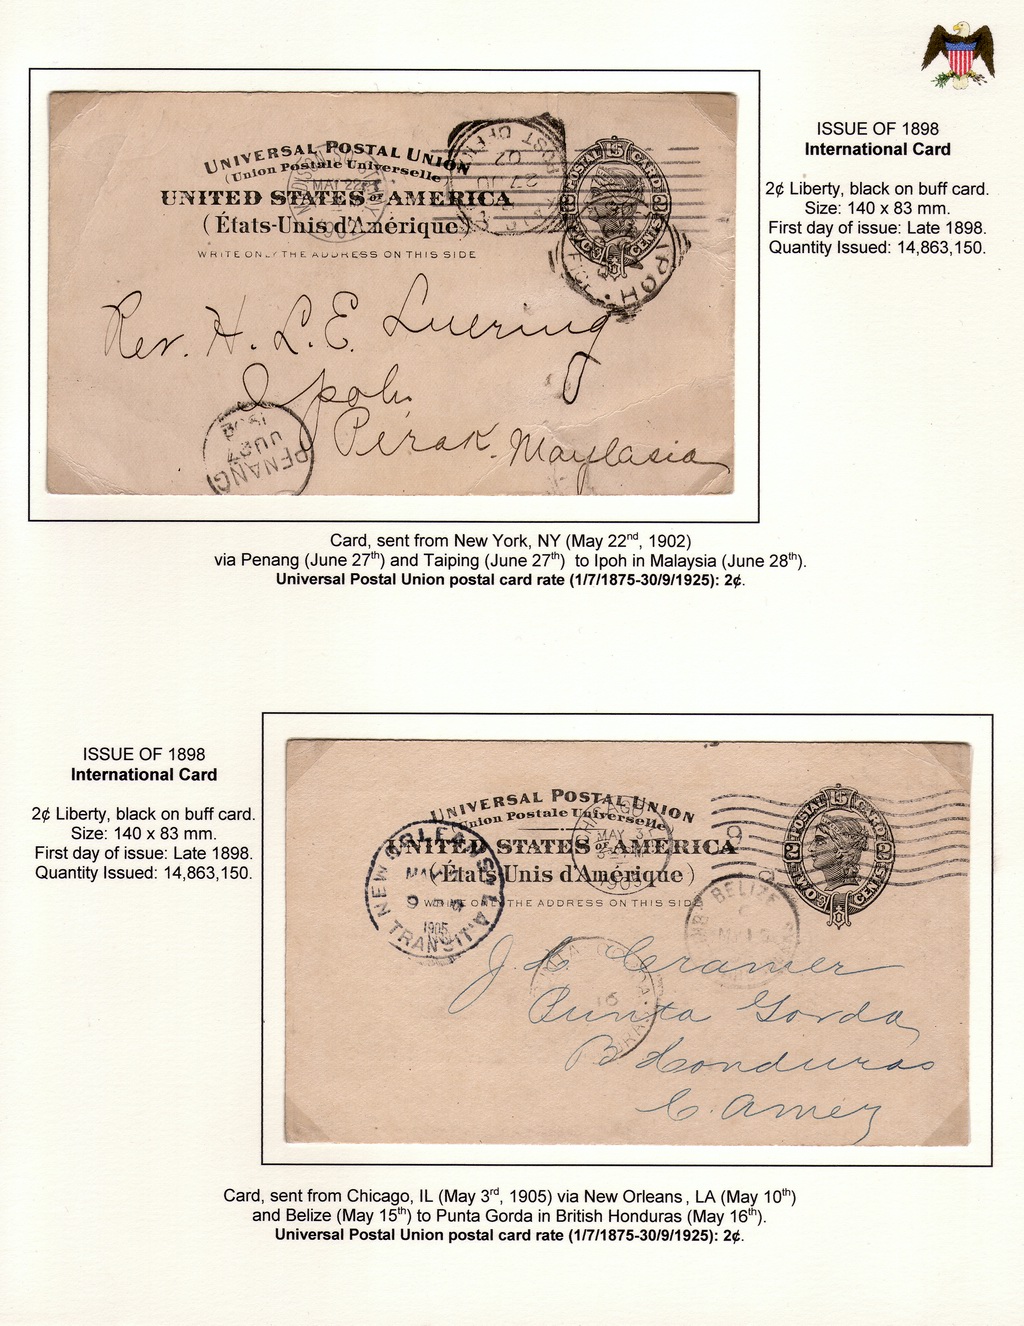 ISSUE OF 1898
International Card
2¢ Liberty, black on buff card.
Size: 140 x 83 mm.
First day of issue: Late 1898.
Quantity Issued: 14,863,150.
UNIVERSAL POSTAL UNION
(Union Postale Universelle)
UNITED STATES OF AMERICA
(États-Unis d'Amérique)
WRITE ONLY THE ADDRESS ON THIS SIDE
POSTAL CARD
TWO CENTS
MAY 22
1902
POST OFFICE
27 JU
02
IPOH
Rev. H. L. E. Luering
Ipoh
Perak. Maylasia
PENANG
JU 27
1902
Card, sent from New York, NY (May 22nd, 1902)
via Penang (June 27th) and Taiping (June 27th) to Ipoh in Malaysia (June 28th).
Universal Postal Union postal card rate (1/7/1875-30/9/1925): 2¢.
ISSUE OF 1898
International Card
2¢ Liberty, black on buff card.
Size: 140 x 83 mm.
First day of issue: Late 1898.
Quantity Issued: 14,863,150.
UNIVERSAL POSTAL UNION
(Union Postale Universelle)
UNITED STATES OF AMERICA
(États-Unis d'Amérique)
WRITE ONLY THE ADDRESS ON THIS SIDE
POSTAL CARD
TWO CENTS
CHICAGO
MAY 3
1905
NEW ORLEANS, LA.
1905
TRANSIT
BELIZE
PUNTA GORDA
16
J. C. Cramer
Punta Gorda
B Honduras
C. Amer
Card, sent from Chicago, IL (May 3rd, 1905) via New Orleans, LA (May 10th)
and Belize (May 15th) to Punta Gorda in British Honduras (May 16th).
Universal Postal Union postal card rate (1/7/1875-30/9/1925): 2¢.